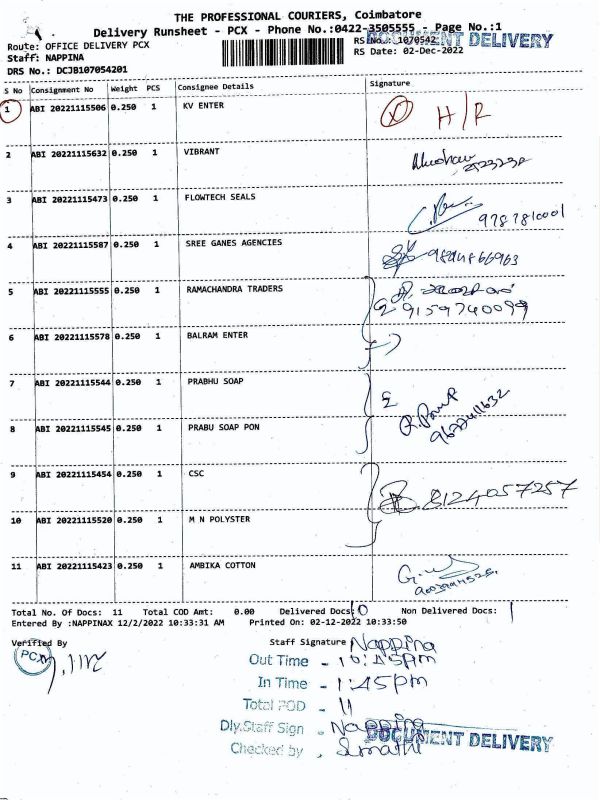 THE PROFESSIONAL COURIERS, Coimbatore
Delivery Runsheet - PCX - Phone No.:0422-3505555 - Page No.:1
Route: OFFICE DELIVERY PCX
RS No.: 1070542
DOCUMENT DELIVERY
Staff: NAPPINA
RS Date: 02-Dec-2022
DRS No.: DCJB107054201
S No Consignment No Weight PCS Consignee Details Signature
1 ABI 20221115506 0.250 1 KV ENTER H/R
2 ABI 20221115632 0.250 1 VIBRANT
3 ABI 20221115473 0.250 1 FLOWTECH SEALS 9787810001
4 ABI 20221115587 0.250 1 SREE GANES AGENCIES 9894866963
5 ABI 20221115555 0.250 1 RAMACHANDRA TRADERS
9159740099
6 ABI 20221115578 0.250 1 BALRAM ENTER
7 ABI 20221115544 0.250 1 PRABHU SOAP
8 ABI 20221115545 0.250 1 PRABU SOAP PON
9 ABI 20221115454 0.250 1 CSC 8124057257
10 ABI 20221115520 0.250 1 M N POLYSTER
11 ABI 20221115423 0.250 1 AMBIKA COTTON
Total No. Of Docs: 11 Total COD Amt: 0.00 Delivered Docs: 10 Non Delivered Docs: 1
Entered By :NAPPINAX 12/2/2022 10:33:31 AM Printed On: 02-12-2022 10:33:50
Verified By Staff Signature Nappina
PCX
Out Time - 10:45pm
In Time - 1:45pm
Total POD - 11
Dly.Staff Sign - Nappina
DOCUMENT DELIVERY
Checked by